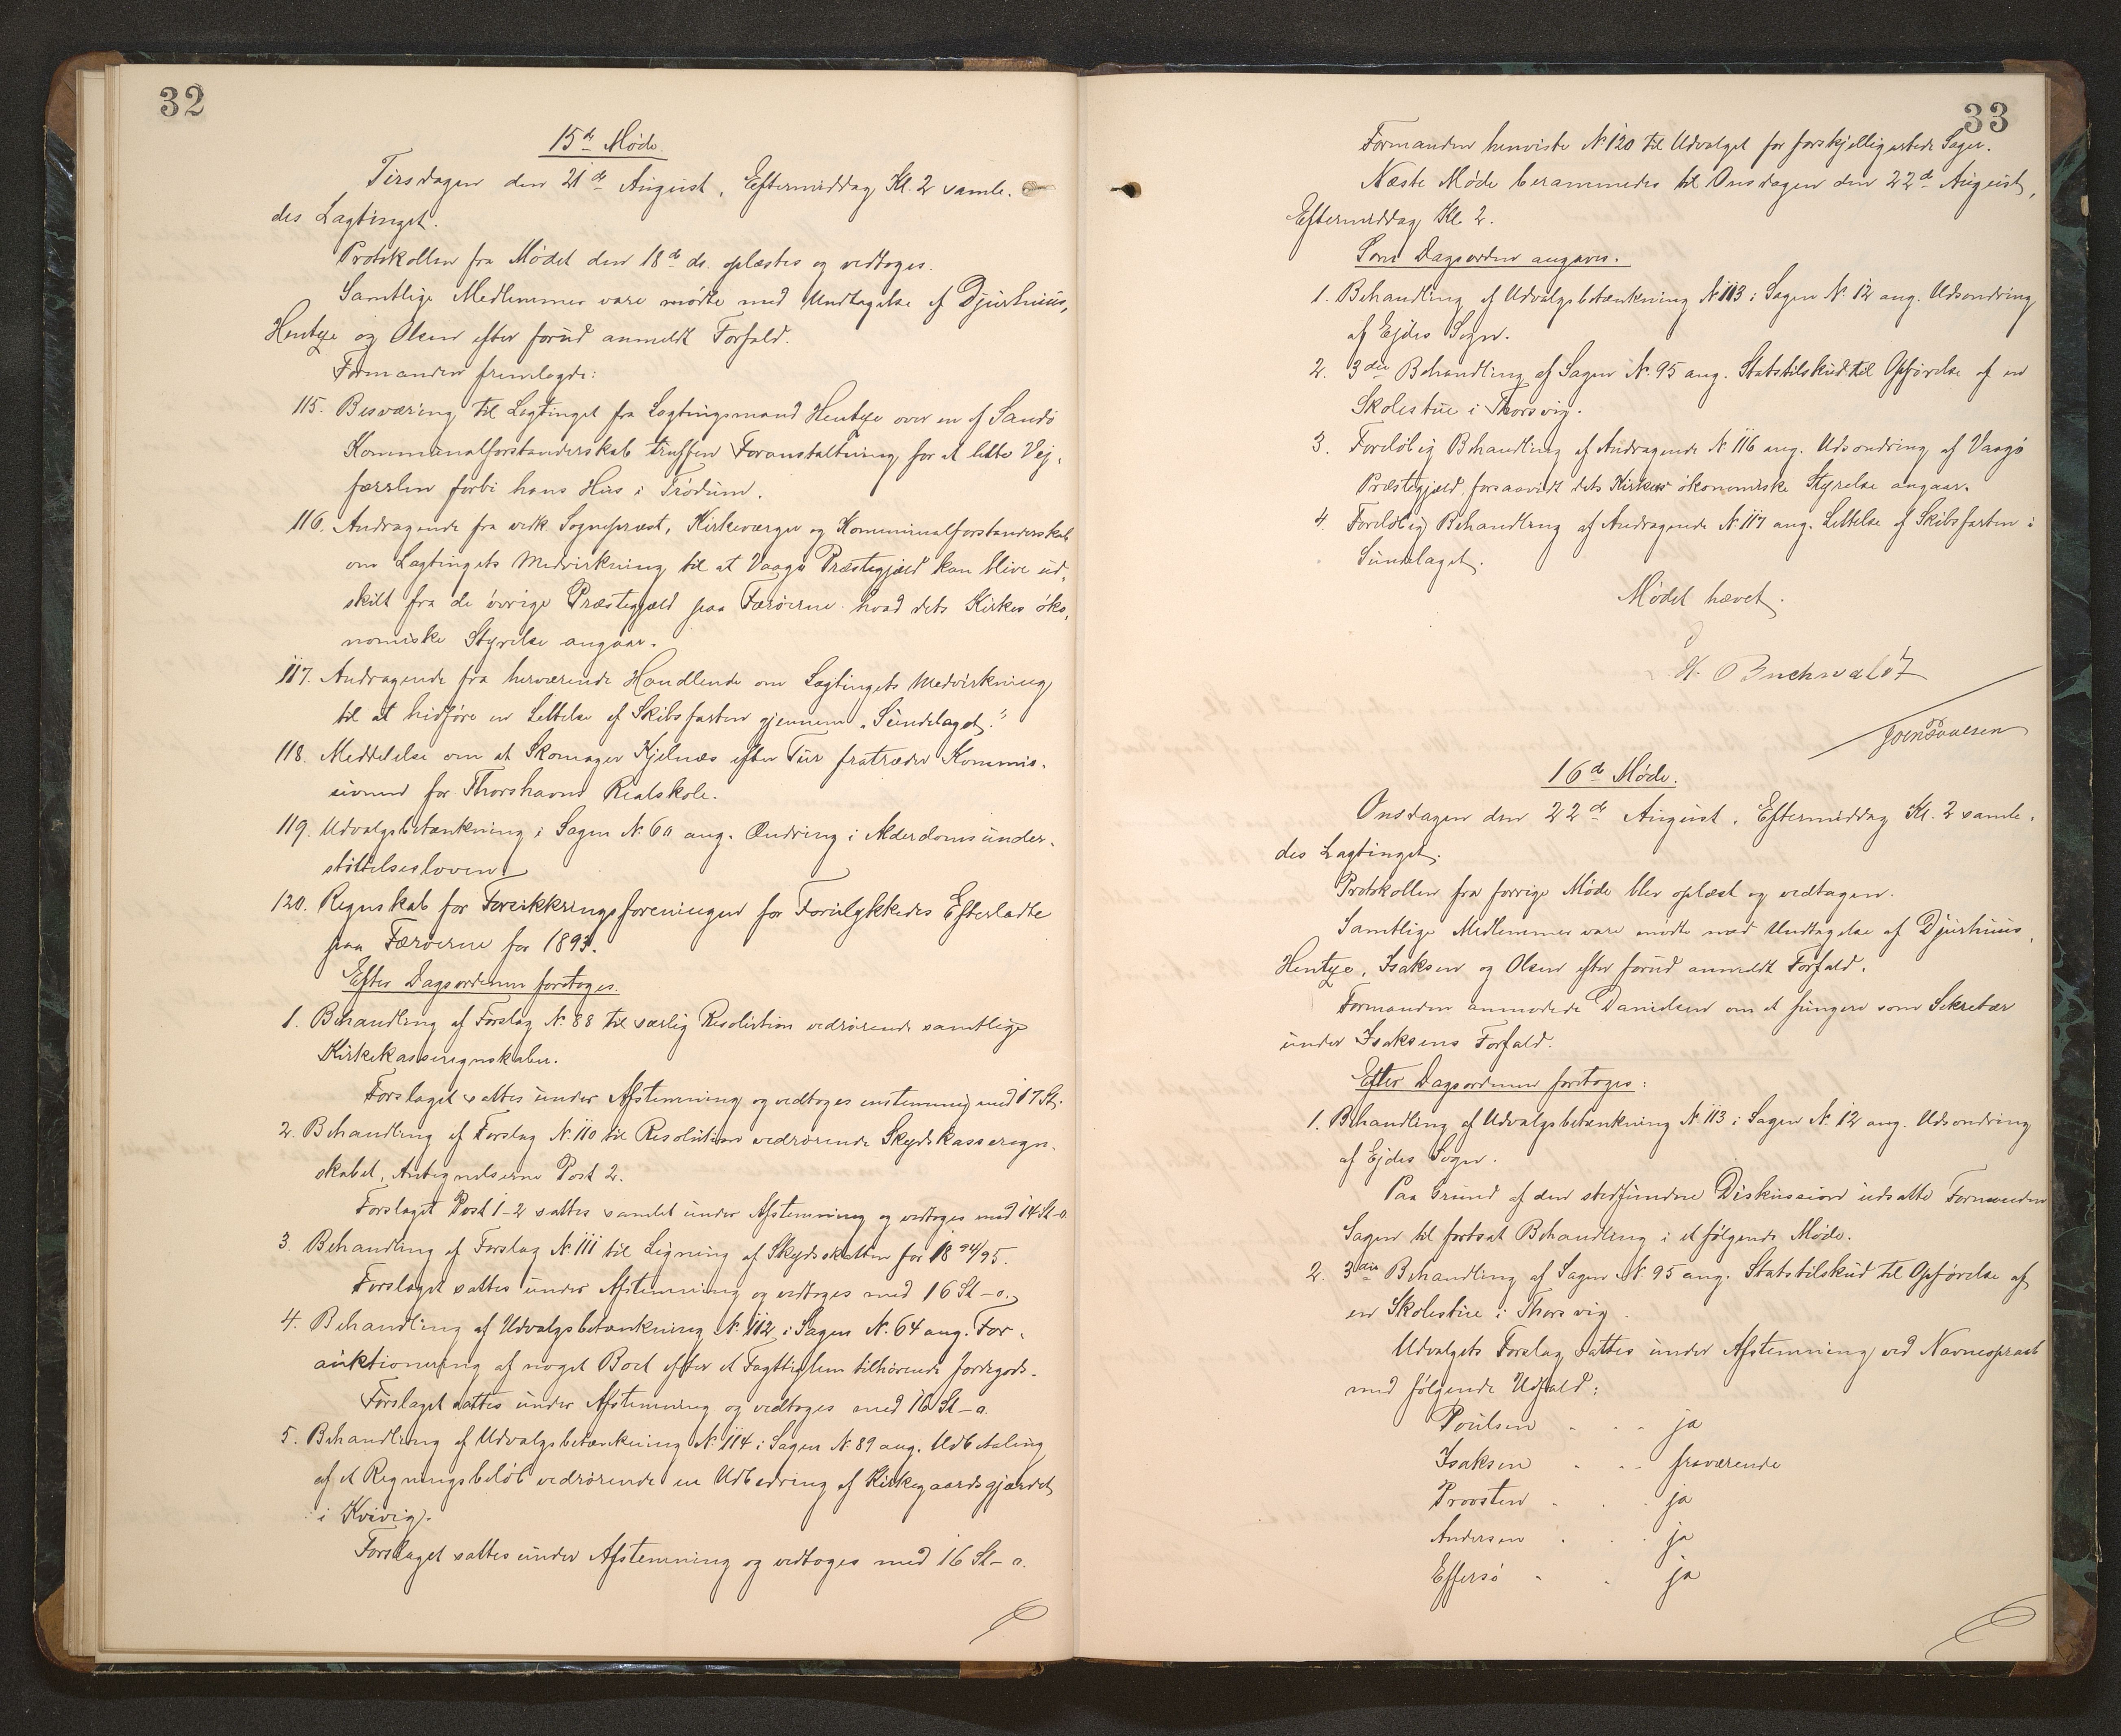 32
15de Møde.
Tirsdagen den 21de August, Eftermiddag Kl. 2 samle-
des Lagtinget.
Protokollen fra Mødet den 18de ds. oplæstes og vedtoges.
Samtlige Medlemmer vare mødte med Undtagelse af Djurhuus,
Hentze og Olsen efter forud anmeldt Forfald.
Formanden fremlagde:
115. Besværing til Lagtinget fra Lagtingsmand Hentze over en af Sandø
Kommunalforstanderskab truffen Foranstaltning for at lette Vej-
færslen forbi hans Hus i Trödum.
116. Andragende fra vedk Sognepræst, Kirkeværger og Kommunalforstanderskab
om Lagtingets Medvirkning til at Vaagø Præstegjæld kan blive ud-
skilt fra de øvrige Præstegjæld paa Færøerne hvad dets Kirkes øko-
nomiske Styrelse angaar.
117. Andragende fra herværende Handlende om Lagtingets Medvirkning
til at hidføre en Lettelse af Skibsfarten gjennem „Sundelaget."
118. Meddelelse om at Skomager Kjelnæs efter Tur fratræder Kommis-
sionen for Thorshavns Realskole.
119. Udvalgsbetænkning i Sagen N. 60 ang. Ændring i Alderdomsunder-
støttelsesloven
120. Regnskab for Forsikkringsforeningen for Forulykkedes Efterladte
paa Færøerne for 1893.
Efter Dagsordenen foretoges.
1. Behandling af Forslag N. 88 til særlig Resolution vedrørende samtlige
Kirkekasseregnskaber.
Forslaget sattes under Afstemning og vedtoges enstemmig med 17 St.
2. Behandling af Forslag N. 110 til Resolution vedrørende Skydskasseregn-
skabet, Antegnelserne Post 2.
Forslaget Post 1-2 sattes samlet under Afstemning og vedtoges med 14 St-0
3. Behandling af Forslag N. 111 til Ligning af Skydsskatten for 1894/95.
Forslaget sattes under Afstemning og vedtoges med 16 St-0.
4. Behandling af Udvalgsbetænkning N. 112 i Sagen N. 64 ang. For-
auktionering af noget Boet efter et Fattiglem tilhørende Jordegods.
Forslaget sattes under Afstemning og vedtoges med 16 St-0.
5. Behandling af Udvalgsbetænkning N. 114 i Sagen N. 89 ang. Udbetaling
af et Regningsbeløb vedrørende en Udbedring af Kirkegaardsgjærdet
i Kvivig.
Forslaget sattes under Afstemning og vedtoges med 16 St-0.
33
Formanden henviste N. 120 til Udvalget for forskjelligartede Sager.
Næste Møde berammedes til Onsdagen den 22de August,
Eftermiddag Kl 2.
Som Dagsorden angaves.
1. Behandling af Udvalgsbetænkning N. 113 i Sagen N. 12 ang. Udsondring
af Ejdes Sogn.
2. 3die Behandling af Sagen N. 95 ang. Statstilskud til Opførelse af en
Skolestue i Thorsvig.
3. Foreløbig Behandling af Andragende N. 116 ang. Udsondring af Vaagø
Præstegjæld forsaavidt dets Kirkes økonomiske Styrelse angaar.
4. Foreløbig Behandling af Andragende N. 117 ang. Lettelse af Skibsfarten i
Sundelaget.
Mødet hævet.
H. Buchwaldt
Joen Poulsen
16de Møde.
Onsdagen den 22de August, Eftermiddag Kl. 2 samle-
des Lagtinget.
Protokollen fra forrige Møde blev oplæst og vedtagen.
Samtlige Medlemmer vare mødte med Undtagelse af Djurhuus,
Hentze, Isaksen og Olsen efter forud anmeldt Forfald.
Formanden anmodede Danielsen om at fungere som Sekretær
under Isaksens Forfald.
Efter Dagsordenen foretoges:
1. Behandling af Udvalgsbetænkning N. 113 i Sagen N. 12 ang. Udsondring
af Ejdes Sogn.
Paa Grund af den stedfundne Diskussion udsatte Formanden
Sagen til fortsat Behandling i et følgende Møde.
2. 3die Behandling af Sagen N. 95 ang. Statstilskud til Opførelse af
en Skolestue i Thorsvig.
Udvalgets Forslag sattes under Afstemning ved Navneopraab
med følgende Udfald:
Poulsen . . . ja
Isaksen . . . fraværende
Provsten . . . ja
Andersen . . . ja
Effersø . . ja